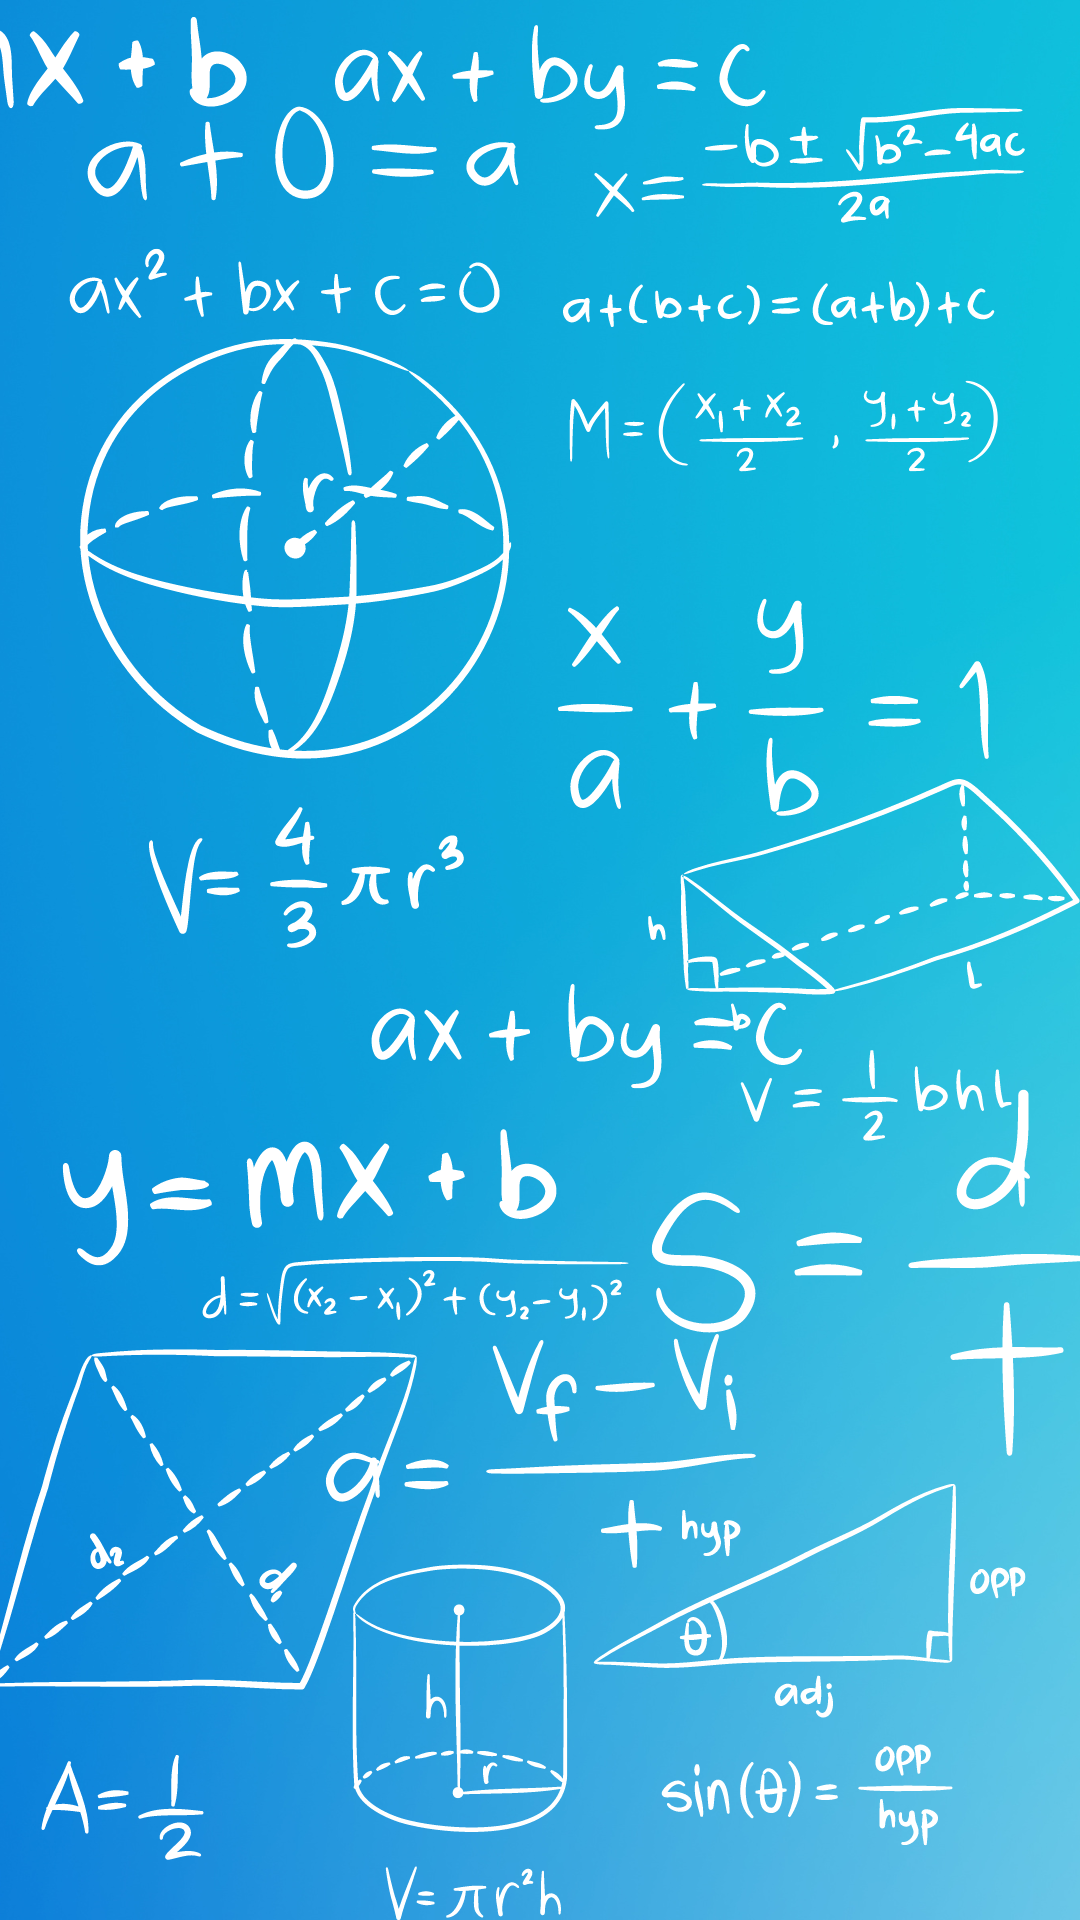 mx + b
ax + by = c
a + 0 = a
x = -b ± √b² - 4ac / 2a
ax² + bx + c = 0
a + (b + c) = (a + b) + c
M = (x₁ + x₂ / 2 , y₁ + y₂ / 2)
r
x / a + y / b = 1
V = 4/3 πr³
h
L
b
ax + by = C
V = 1/2 bhL
y = mx + b
S = d / t
d = √(x₂ - x₁)² + (y₂ - y₁)²
a = Vf - Vi / t
d₂
d₁
hyp
opp
θ
adj
h
r
A = 1/2
sin(θ) = opp / hyp
V = πr²h